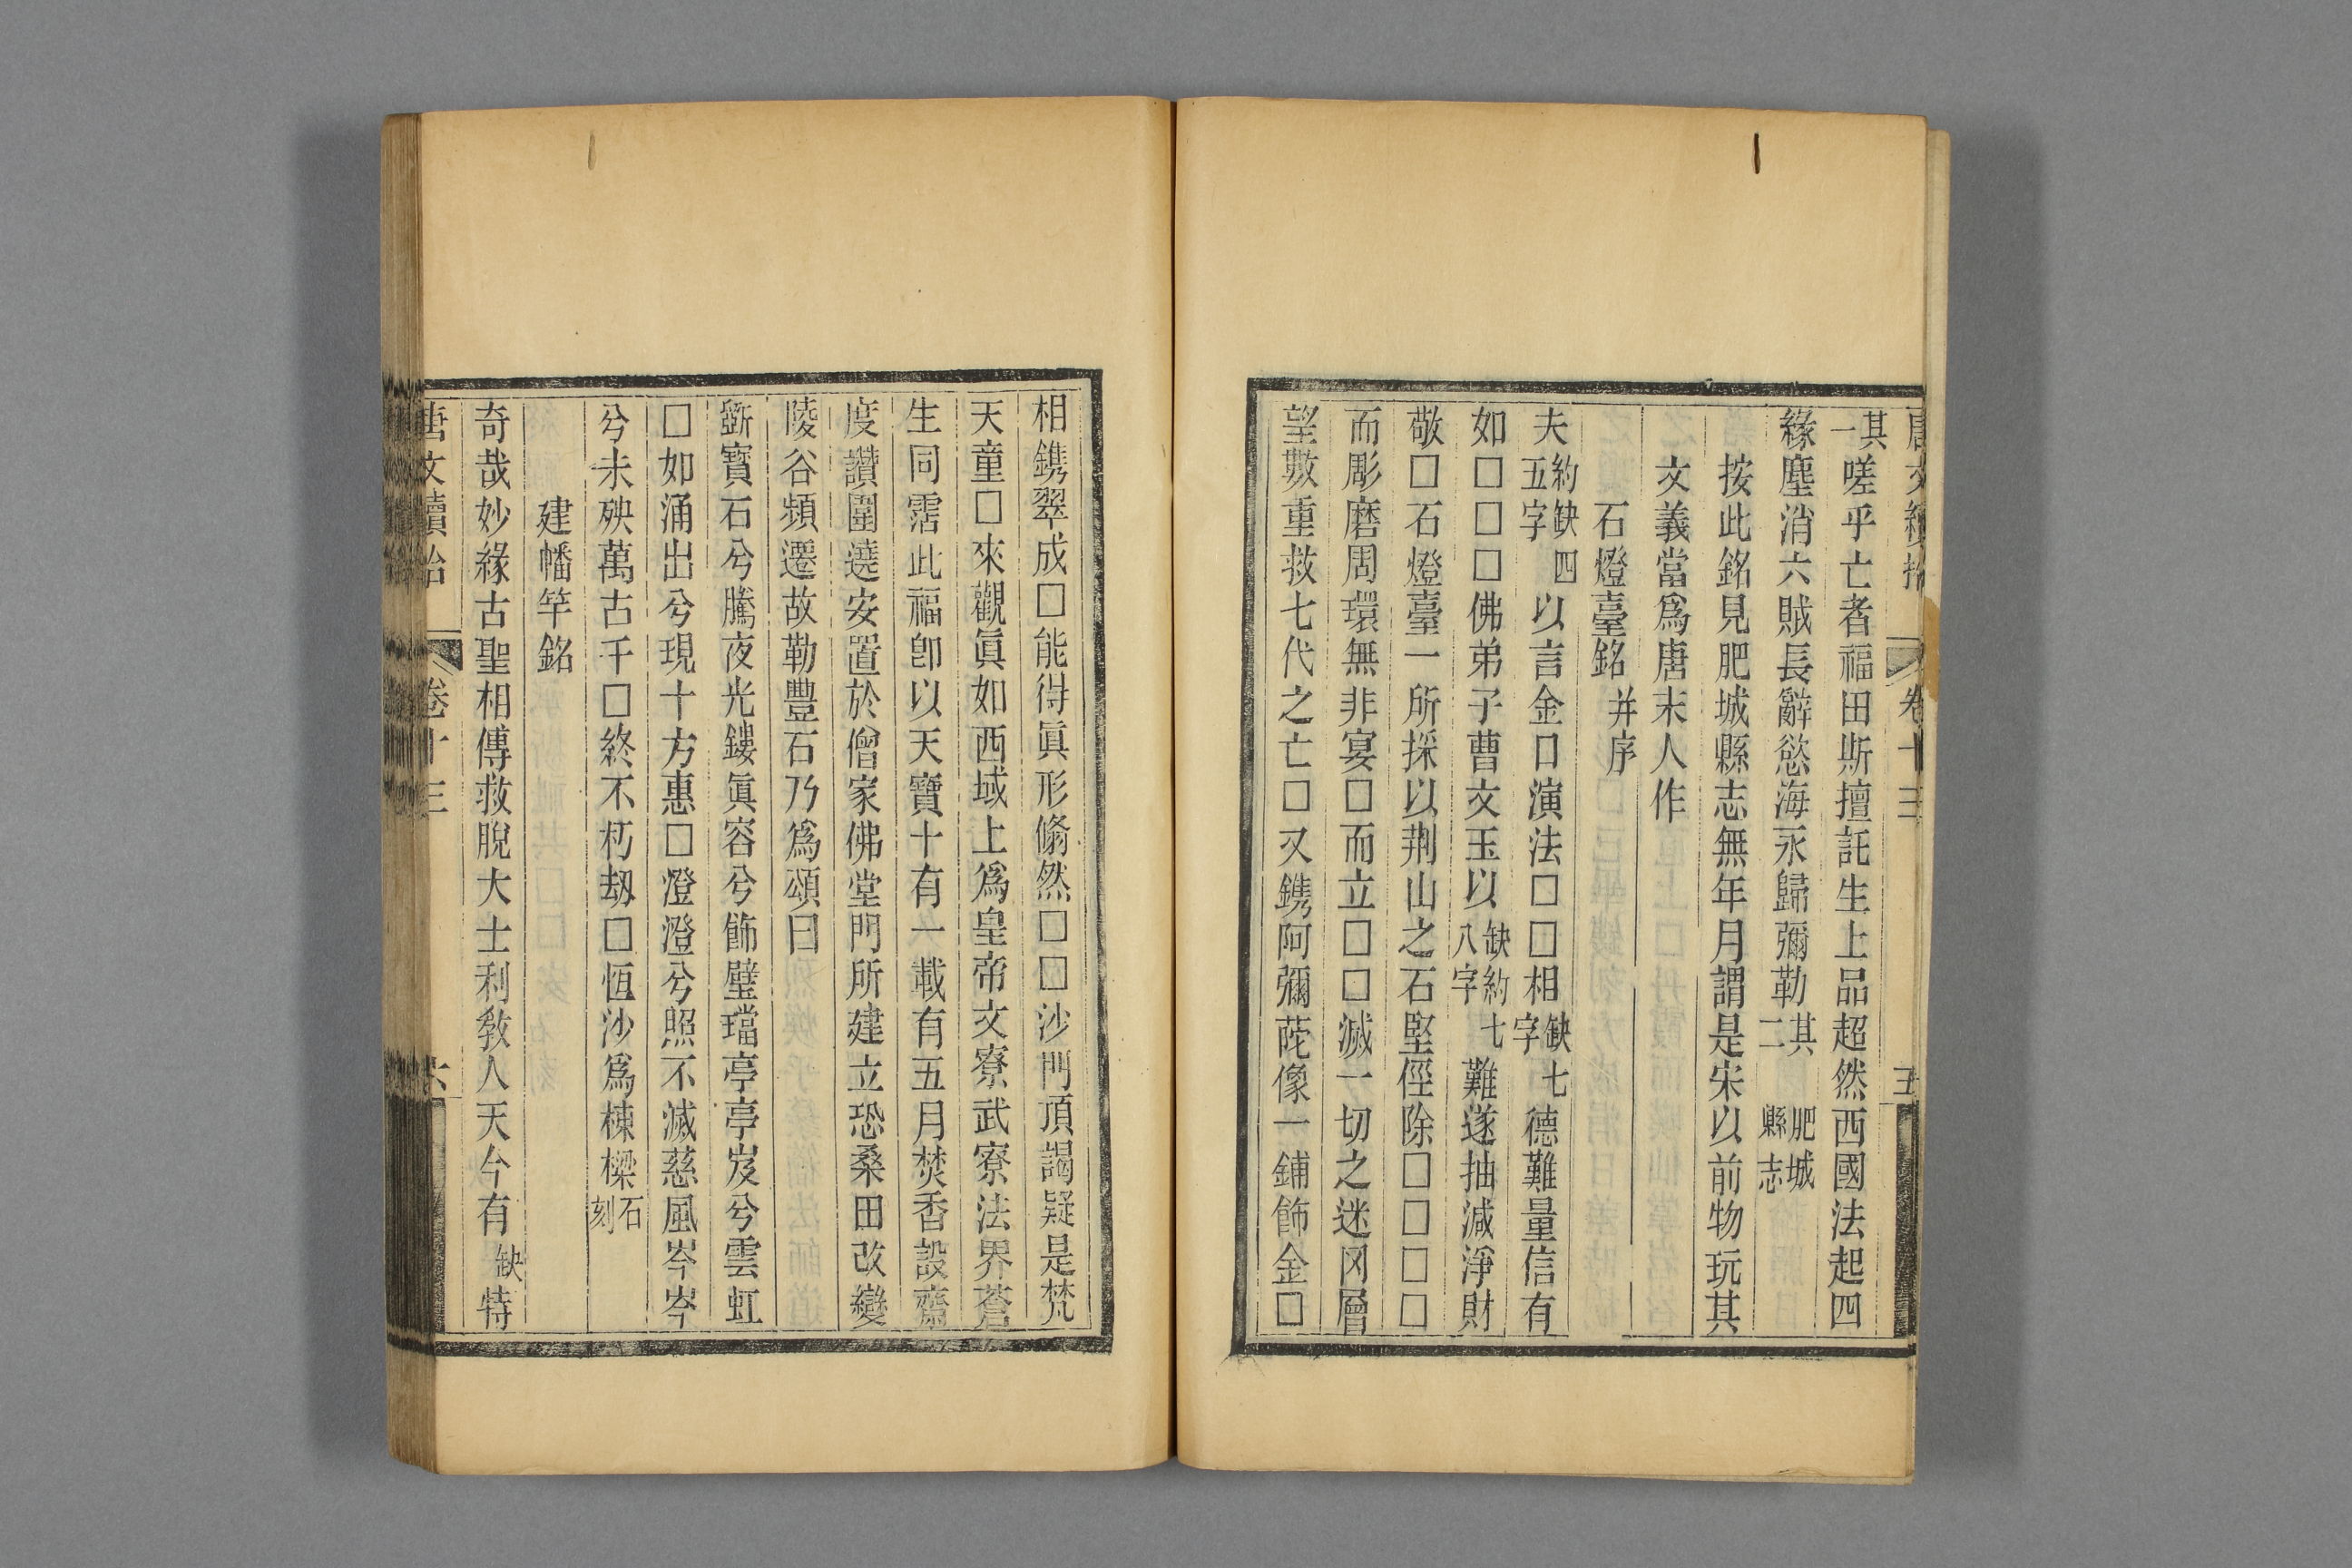 唐文續拾 卷十三 五
其一嗟乎亡者福田斯擅託生上品超然西國法起四
緣塵消六賊長辭慾海永歸彌勒其二 肥城縣志
按此銘見肥城縣志無年月謂是宋以前物玩其
文義當爲唐末人作
石燈臺銘 并序
夫約缺四五字以言金口演法□□相缺七字德難量信有
如□□□佛弟子曹文玉以缺約七八字難遂抽減淨財
敬□石燈臺一所採以荆山之石堅徑除□□□□
而彫磨周環無非宴□而立□□滅一切之迷罔層
望數重救七代之亡□又鐫阿彌陁像一鋪飾金□
相鐫翠成□能得眞形翛然□□沙門頂謁疑是梵
天童□來觀眞如西域上爲皇帝文寮武寮法界蒼
生同霑此福卽以天寶十有一載有五月焚香設齋
度讚圍遶安置於僧家佛堂門所建立恐桑田改變
陵谷頻遷故勒豐石乃爲頌曰
斵寶石兮騰夜光鏤眞容兮飾璧璫亭亭岌兮雲虹
□如涌出兮現十方惠□燈澄兮照不滅慈風岑岑
兮未殃萬古千□終不朽刼□恆沙爲棟樑石刻
建幡竿銘
奇哉妙緣古聖相傳救脫大士利敎人天今有缺特
唐文續拾 卷十三 六